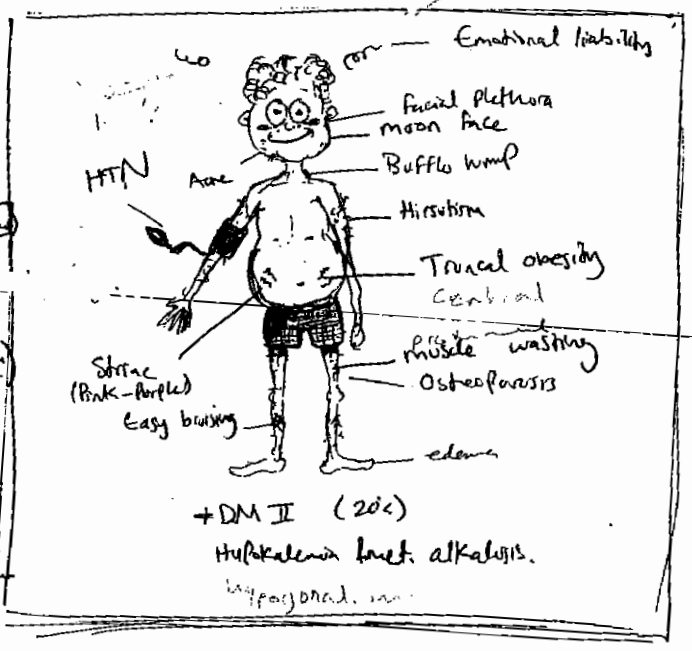 Emotional liability
Facial plethora
moon face
Acne
Bufflo hump
HTN
Hirsutism
Truncal obesity
Central
muscle wasting
Osteoporosis
Striae
(Pink-Purple)
Easy bruising
edema
+DM II (20%)
Hypokalemia + met. alkalosis.